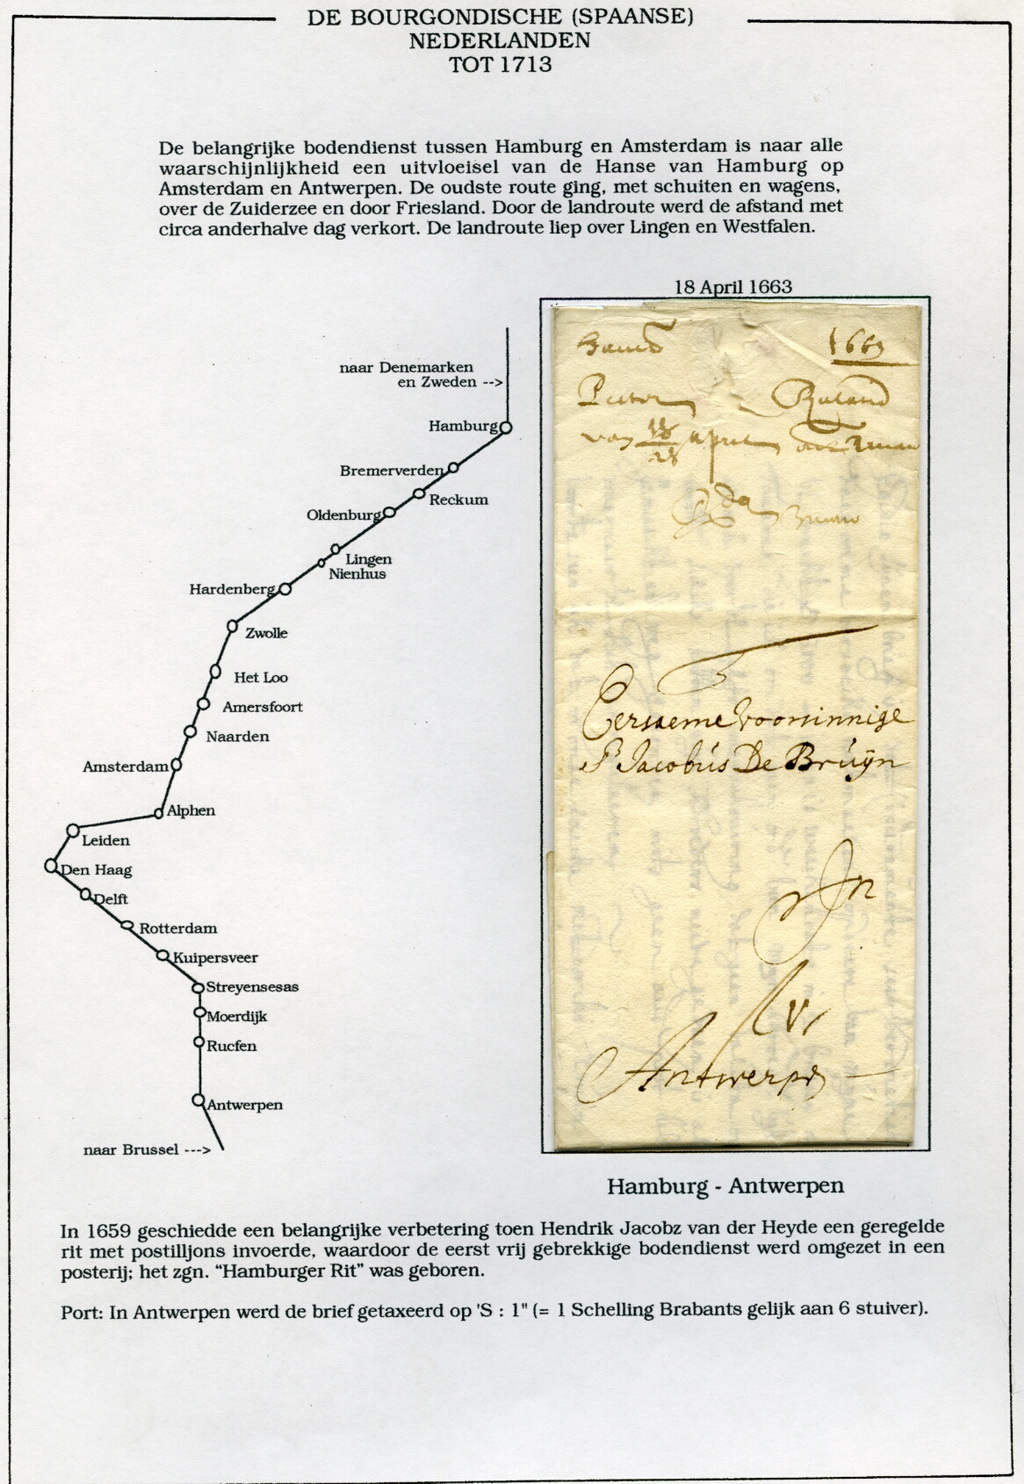 DE BOURGONDISCHE (SPAANSE)
NEDERLANDEN
TOT 1713
De belangrijke bodendienst tussen Hamburg en Amsterdam is naar alle
waarschijnlijkheid een uitvloeisel van de Hanse van Hamburg op
Amsterdam en Antwerpen. De oudste route ging, met schuiten en wagens,
over de Zuiderzee en door Friesland. Door de landroute werd de afstand met
circa anderhalve dag verkort. De landroute liep over Lingen en Westfalen.
naar Denemarken
en Zweden -->
Hamburg
Bremerverden
Reckum
Oldenburg
Lingen
Nienhus
Hardenberg
Zwolle
Het Loo
Amersfoort
Naarden
Amsterdam
Alphen
Leiden
Den Haag
Delft
Rotterdam
Kuipersveer
Streyensesas
Moerdijk
Rucfen
Antwerpen
naar Brussel --->
18 April 1663
1663
Pieter Ruland
18
28 April
Eersaeme Voorsinnige
Sr Jacobús De Brúÿn
In
Antwerpen
Hamburg - Antwerpen
In 1659 geschiedde een belangrijke verbetering toen Hendrik Jacobz van der Heyde een geregelde
rit met postilljons invoerde, waardoor de eerst vrij gebrekkige bodendienst werd omgezet in een
posterij; het zgn. “Hamburger Rit” was geboren.
Port: In Antwerpen werd de brief getaxeerd op 'S : 1" (= 1 Schelling Brabants gelijk aan 6 stuiver).